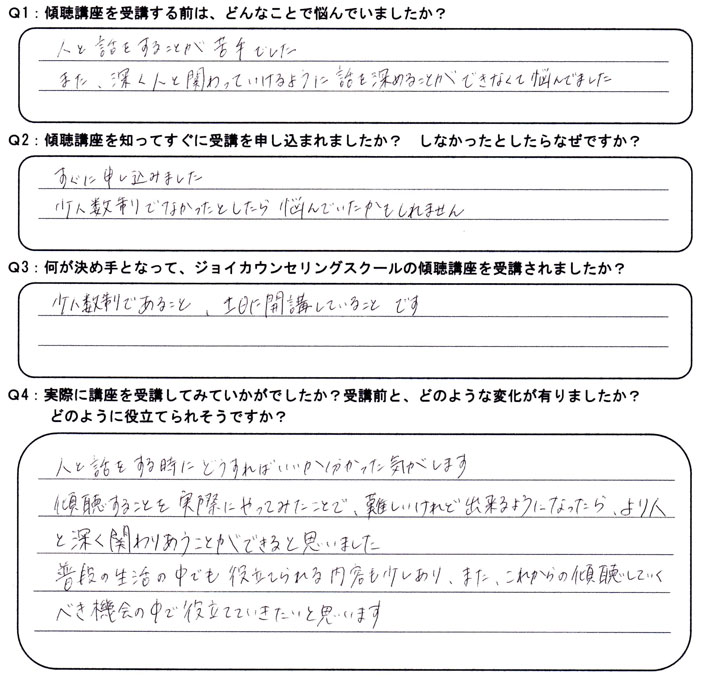 Q1：傾聴講座を受講する前は、どんなことで悩んでいましたか？
人と話をすることが苦手でした
また、深く人と関わっていけるように話を深めることができなくて悩んでました
Q2：傾聴講座を知ってすぐに受講を申し込まれましたか？　しなかったとしたらなぜですか？
すぐに申し込みました
少人数制でなかったとしたら悩んでいたかもしれません
Q3：何が決め手となって、ジョイカウンセリングスクールの傾聴講座を受講されましたか？
少人数制であること、土日に開講していることです
Q4：実際に講座を受講してみていかがでしたか？受講前と、どのような変化が有りましたか？
どのように役立てられそうですか？
人と話をする時にどうすればいいか分かった気がします
傾聴することを実際にやってみたことで、難しいけれど出来るようになったら、より人
と深く関わりあうことができると思いました
普段の生活の中でも役立てられる内容も少しあり、また、これからの傾聴していく
べき機会の中で役立てていきたいと思います